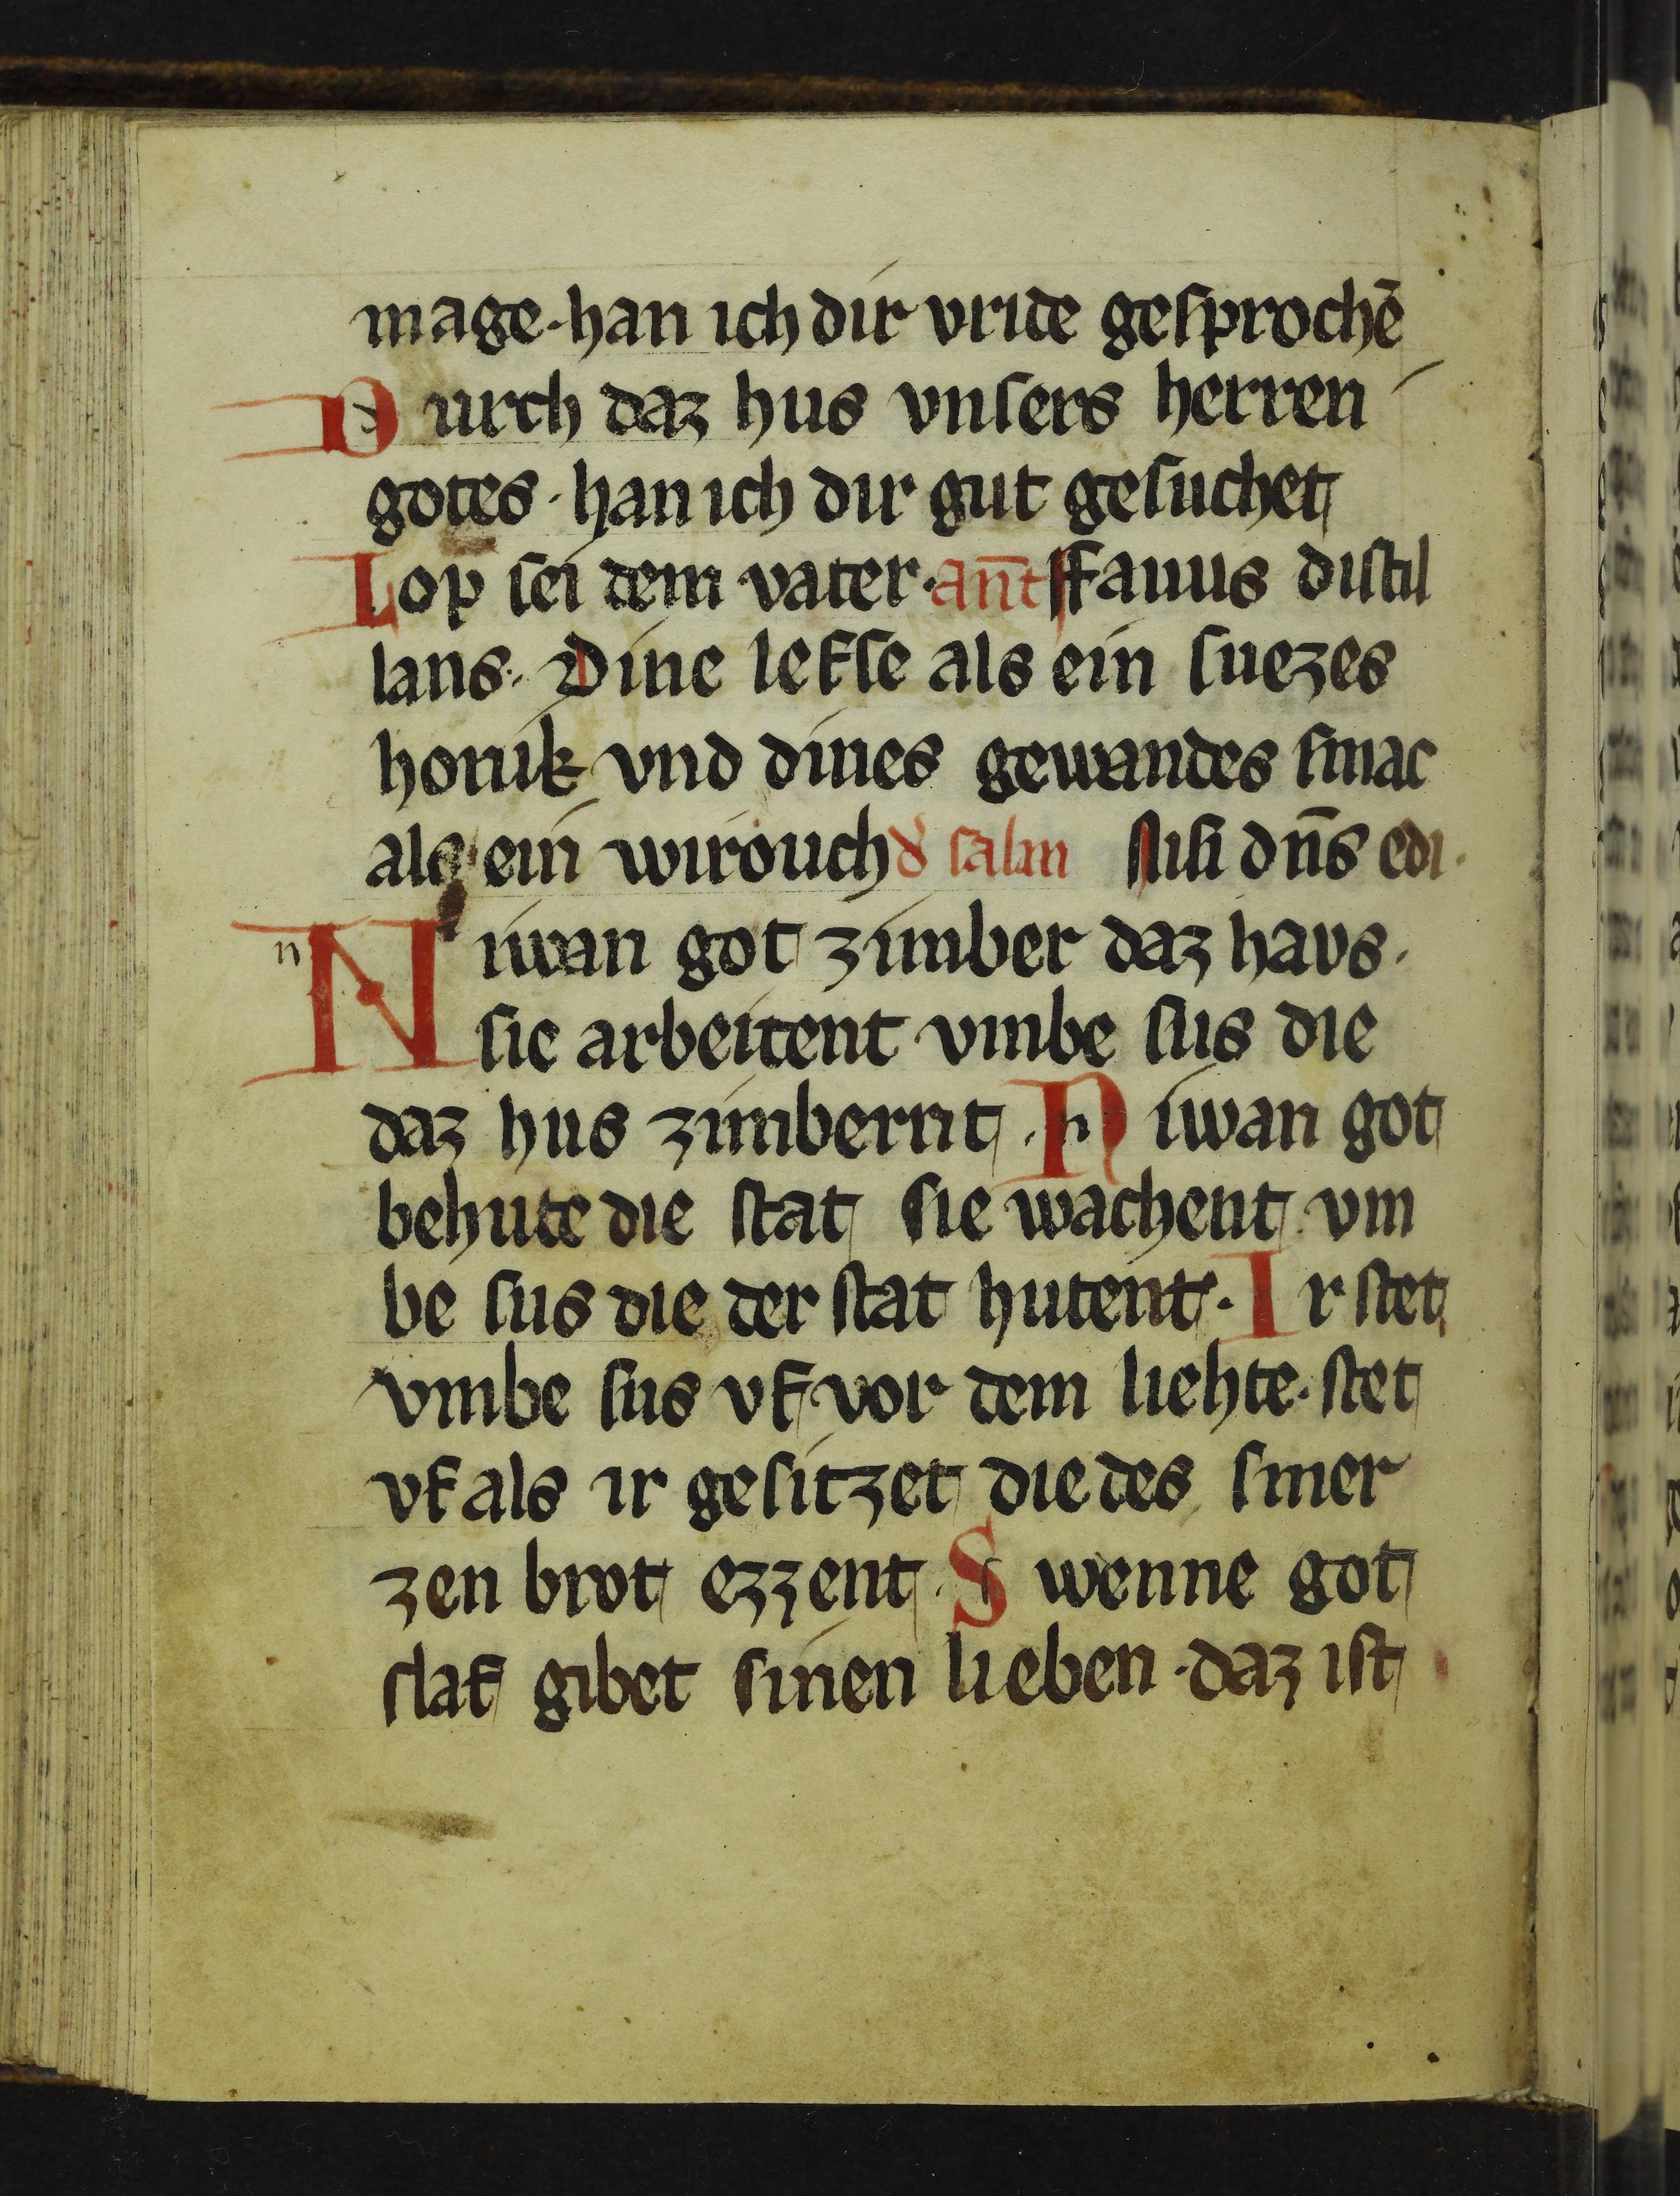 mage · han ich dir vride geſprochē
Durch daz hus vnſers herren
gotes · han ich dir gut geſuchet
Lop ſei dem vater · an̄t ffauus diſtil
lans · Dine lefſe als ein ſuezes
honik vnd dines gewandes ſmac
als ein wirouch d᷎ ſalm Niſi dn̄s edi ·
Niwan got zimber daz havs ·
ſie arbeitent vmbe ſus die
daz hus zimbernt · Niwan got
behute die ſtat ſie wachent vm
be ſus die der ſtat hutent · Ir ſtet
vmbe ſus vf vor dem liehte · ſtet
vf als ir geſitzet die des ſmer
zen brot ezzent · Swenne got
ſlaf gibet ſinen lieben · daz iſt